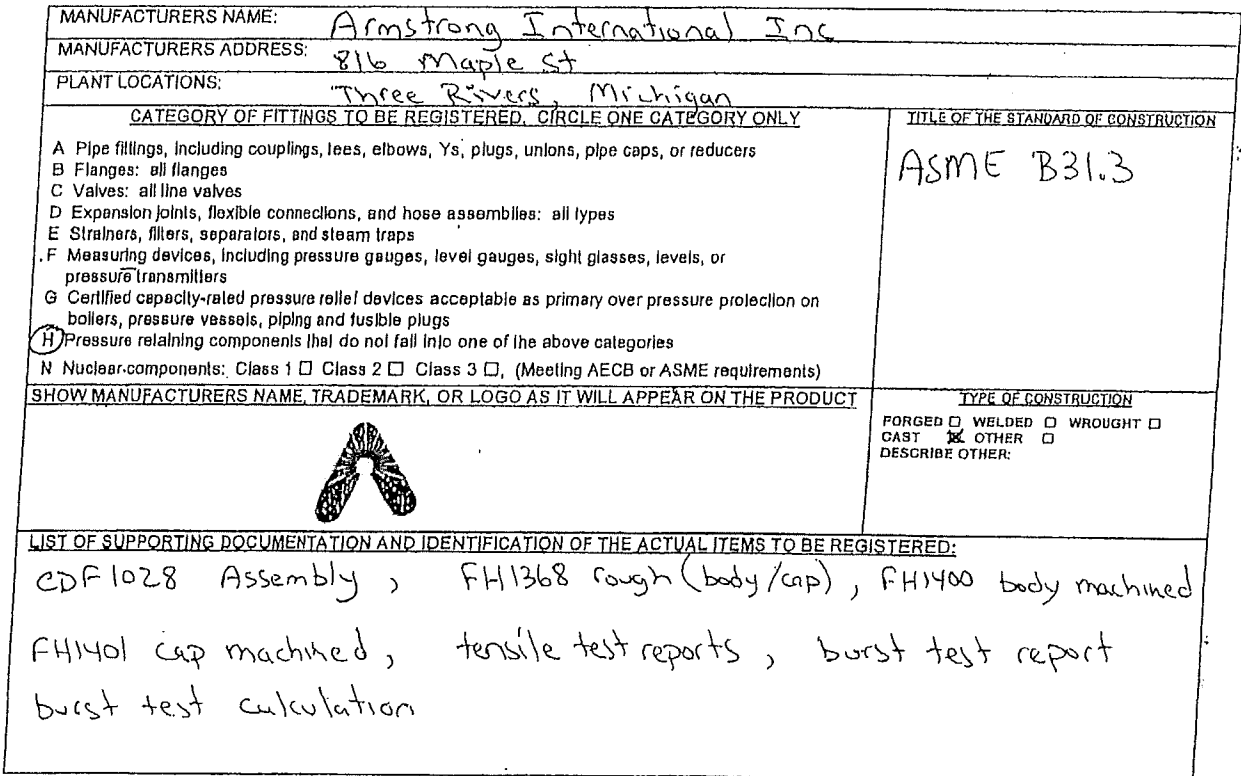 MANUFACTURERS NAME: Armstrong International Inc
MANUFACTURERS ADDRESS: 816 Maple St
PLANT LOCATIONS: Three Rivers, Michigan
CATEGORY OF FITTINGS TO BE REGISTERED. CIRCLE ONE CATEGORY ONLY
A Pipe fittings, including couplings, tees, elbows, Ys, plugs, unions, pipe caps, or reducers
B Flanges: all flanges
C Valves: all line valves
D Expansion joints, flexible connections, and hose assemblies: all types
E Strainers, filters, separators, and steam traps
F Measuring devices, including pressure gauges, level gauges, sight glasses, levels, or
pressure transmitters
G Certified capacity-rated pressure relief devices acceptable as primary over pressure protection on
boilers, pressure vessels, piping and fusible plugs
H Pressure retaining components that do not fall into one of the above categories
N Nuclear components: Class 1 □ Class 2 □ Class 3 □, (Meeting AECB or ASME requirements)
TITLE OF THE STANDARD OF CONSTRUCTION
ASME B31.3
SHOW MANUFACTURERS NAME, TRADEMARK, OR LOGO AS IT WILL APPEAR ON THE PRODUCT
TYPE OF CONSTRUCTION
FORGED □ WELDED □ WROUGHT □
CAST ☒ OTHER □
DESCRIBE OTHER:
LIST OF SUPPORTING DOCUMENTATION AND IDENTIFICATION OF THE ACTUAL ITEMS TO BE REGISTERED:
CDF1028 Assembly, FH1368 rough (body/cap), FH1400 body machined
FH1401 cap machined, tensile test reports, burst test report
burst test calculation